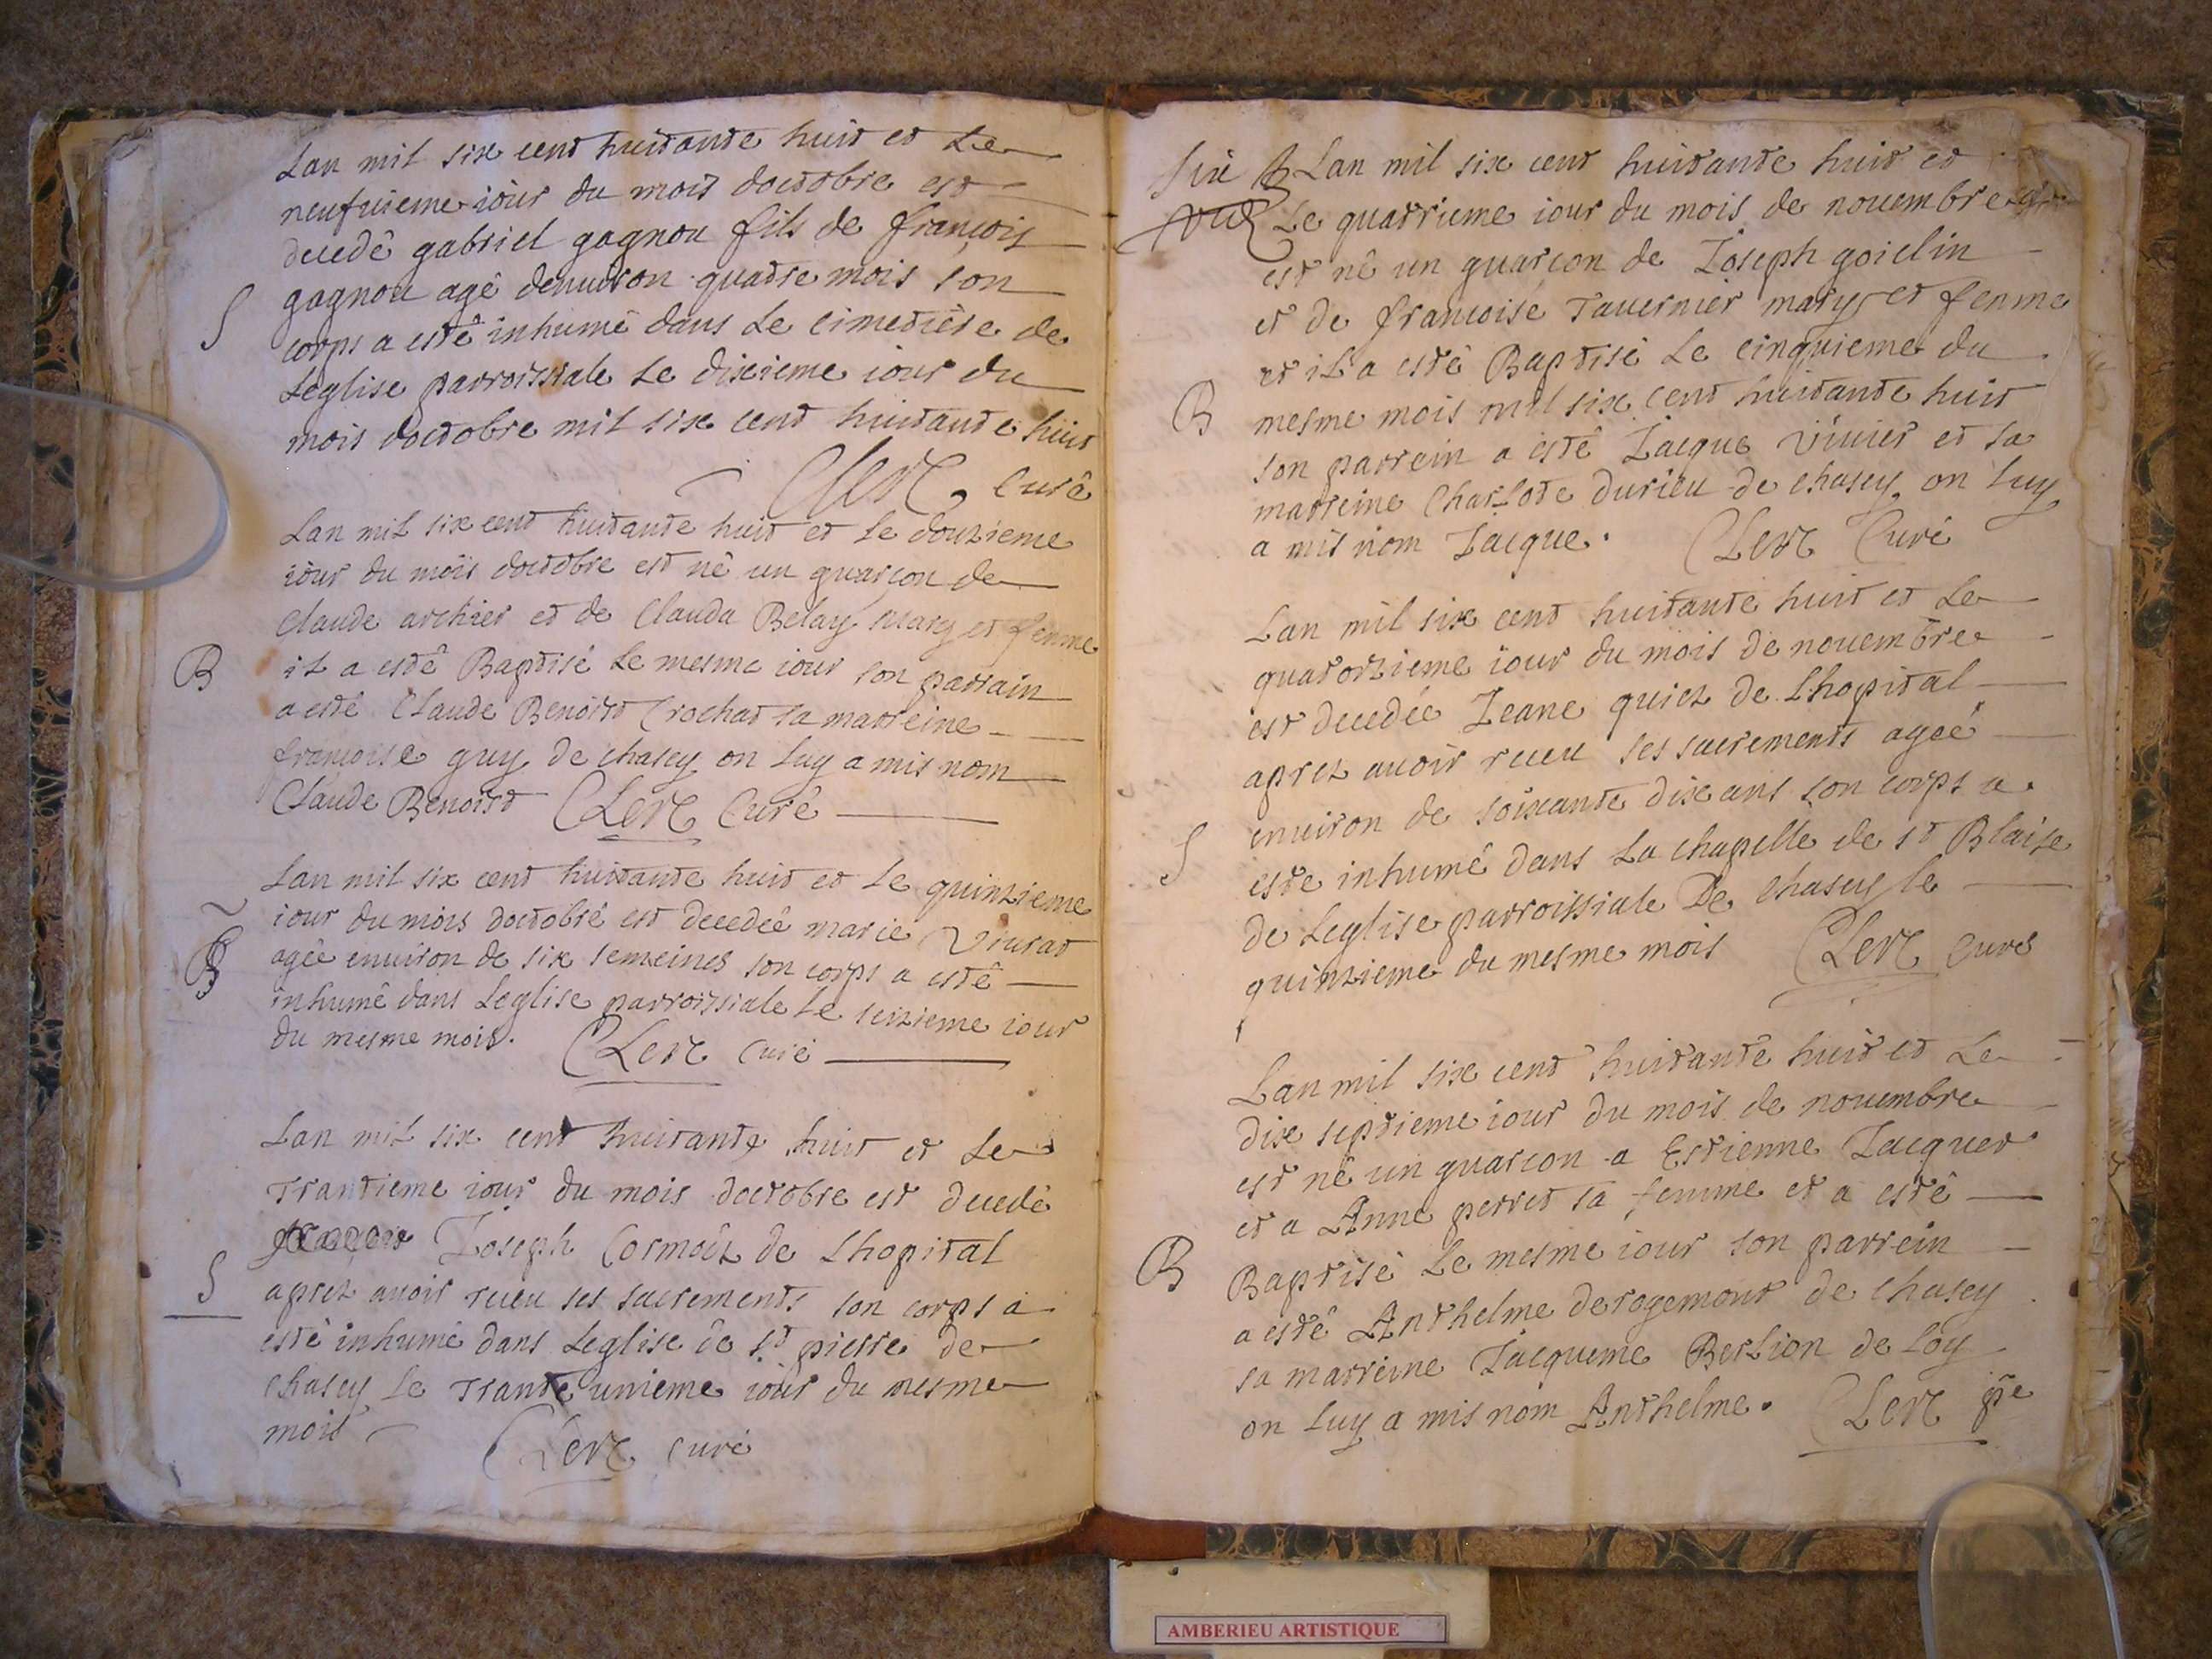 Lan mil six cent huitante huit et Le
neufuieme iour du mois doctobre est
decedê gabriel gagnou fils de françois
gagnou agê denuiron quatre mois son
S
corps a estê inhumê dans Le cimetière de
Leglise parroissiale Le dixieme iour du
mois doctobre mil six cent huitante huit
Clerc Curê
Lan mil six cent huitante huit et Le douzieme
iour du mois doctobre est nê un guarçon de
Claude archier et de Clauda Belay mary et femme
B
il a estê Baptisé Le mesme iour son parrain
a estê Claude Benoist Crochat sa marreine
françoise guy de chasey on Luy a mis nom
Claude Benoist Clerc Curê
Lan mil six cent huitante huit et Le quinzieme
iour du mois doctobre est decedeê marie Viurat
agêe enuiron de six semeines son corps a estê
inhumê dans Leglise parroissiale Le seizieme iour
du mesme mois. Clerc Curé
Lan mil six cent huitante huit et Le
Trantieme iour du mois doctobre est decedé
Joseph Cormoz de Lhopital
S
aprez auoir receu ses sacrements son corps a
esté inhumé dans Leglise de st pierre de
chasey Le Trante unieme iour du mesme
mois
Clerc curé
Lan mil six cent huitante huit et
Le quatrieme iour du mois de nouembre
est nê un guarçon de Joseph goiclin
et de françoise Tauernier mary et femme
et il a estê Baptisé Le cinquieme du
B
mesme mois mil six cent huitante huit
son parrein a estê Jacque Viuier et sa
marreine Charlote durieu de chasey on Luy
a mis nom Jacque. Clerc Curé
Lan mil six cent huitante huit et Le
quatorzieme iour du mois de nouembre
est decedée Jeane quiez de Lhopital
aprez auoir receu ses sacrements agée
enuiron de soixante dix ans son corps a
S
este inhumê dans La chapelle de st Blaise
de Leglise parroissiale De chasey le
quinzieme du mesme mois Clerc Cure
Lan mil six cent huitante huit et Le
dix septieme iour du mois de nouembre
est nê un guarçon a Estienne Jacquet
et a Anne perret sa femme et a estê
B
Baptisé Le mesme iour son parrein
a estê Anthelme derogemont de chasey
sa marreine Jacqueme Berlion de Loy
on Luy a mis nom Anthelme. Clerc pre
AMBERIEU ARTISTIQUE